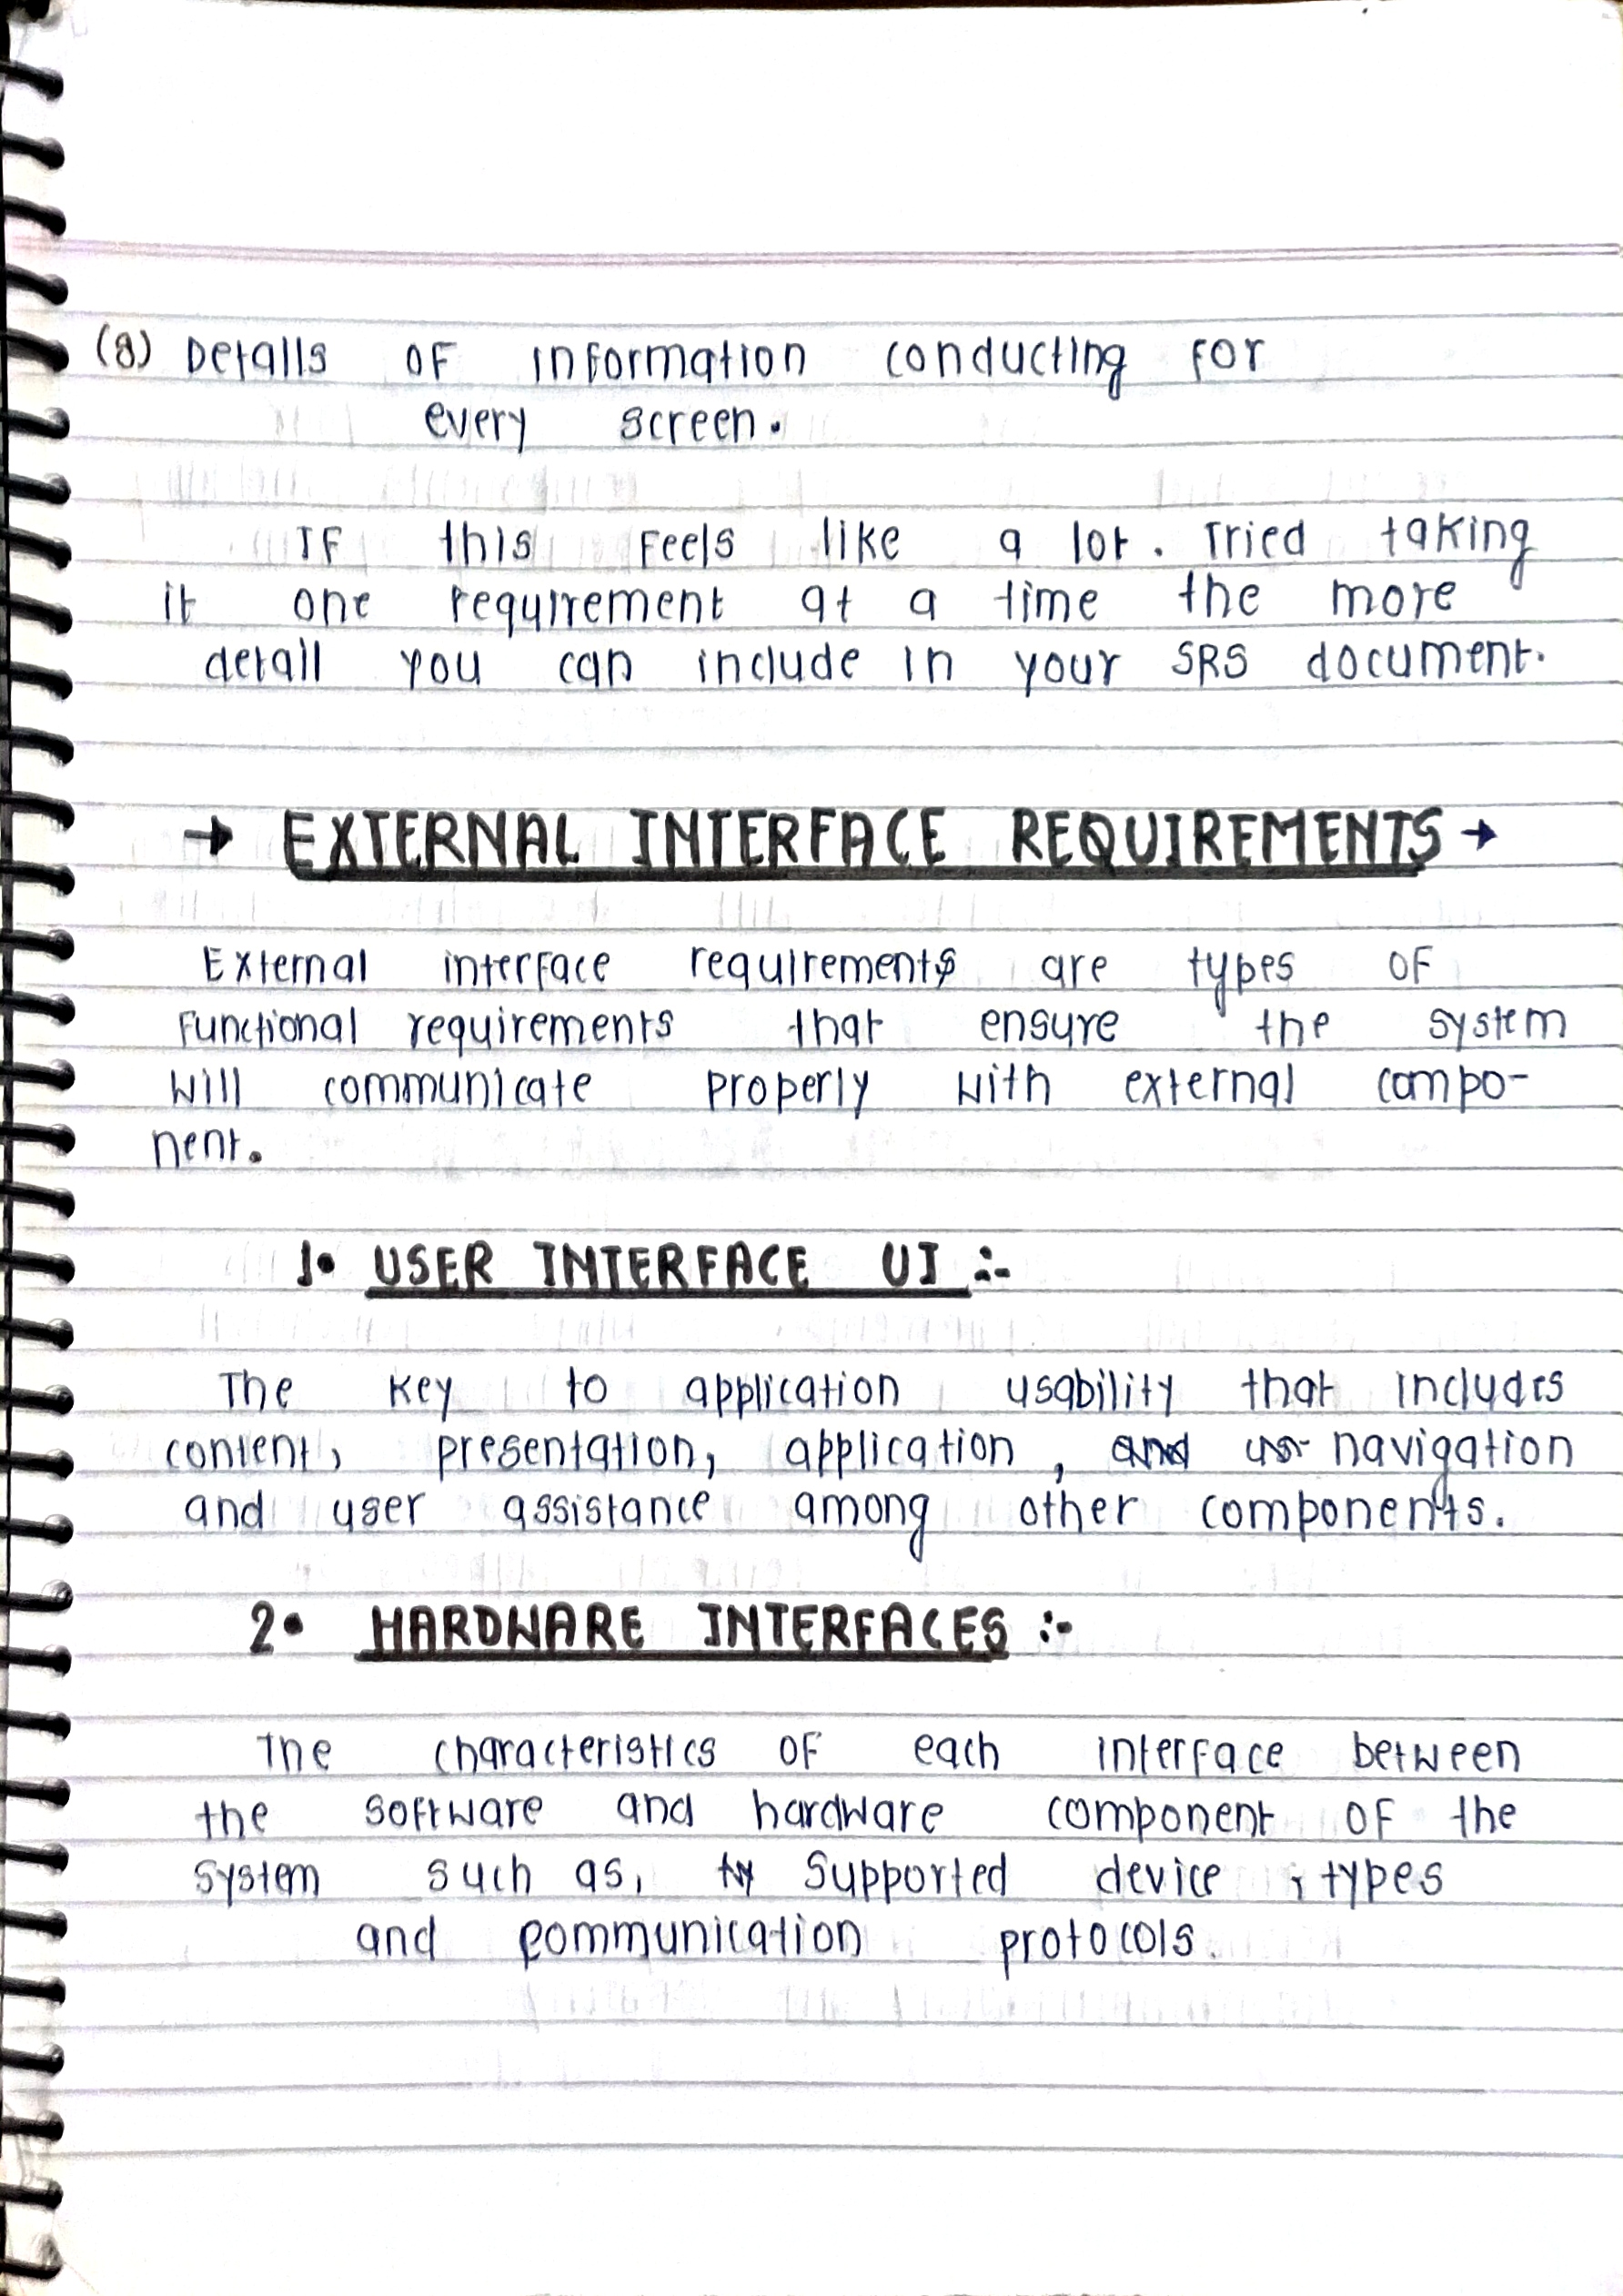 (8) Details of information conducting for
every screen.
If this feels like a lot. Tried taking
it one requirement at a time the more
detail you can include in your SRS document.
→ EXTERNAL INTERFACE REQUIREMENTS →
External interface requirements are types of
functional requirements that ensure the system
will communicate properly with external compo-
nent.
1. USER INTERFACE UI :-
The key to application usability that includes
content, presentation, application, navigation
and user assistance among other components.
2. HARDWARE INTERFACES :-
The characteristics of each interface between
the software and hardware component of the
system such as, supported device, types
and communication protocols.